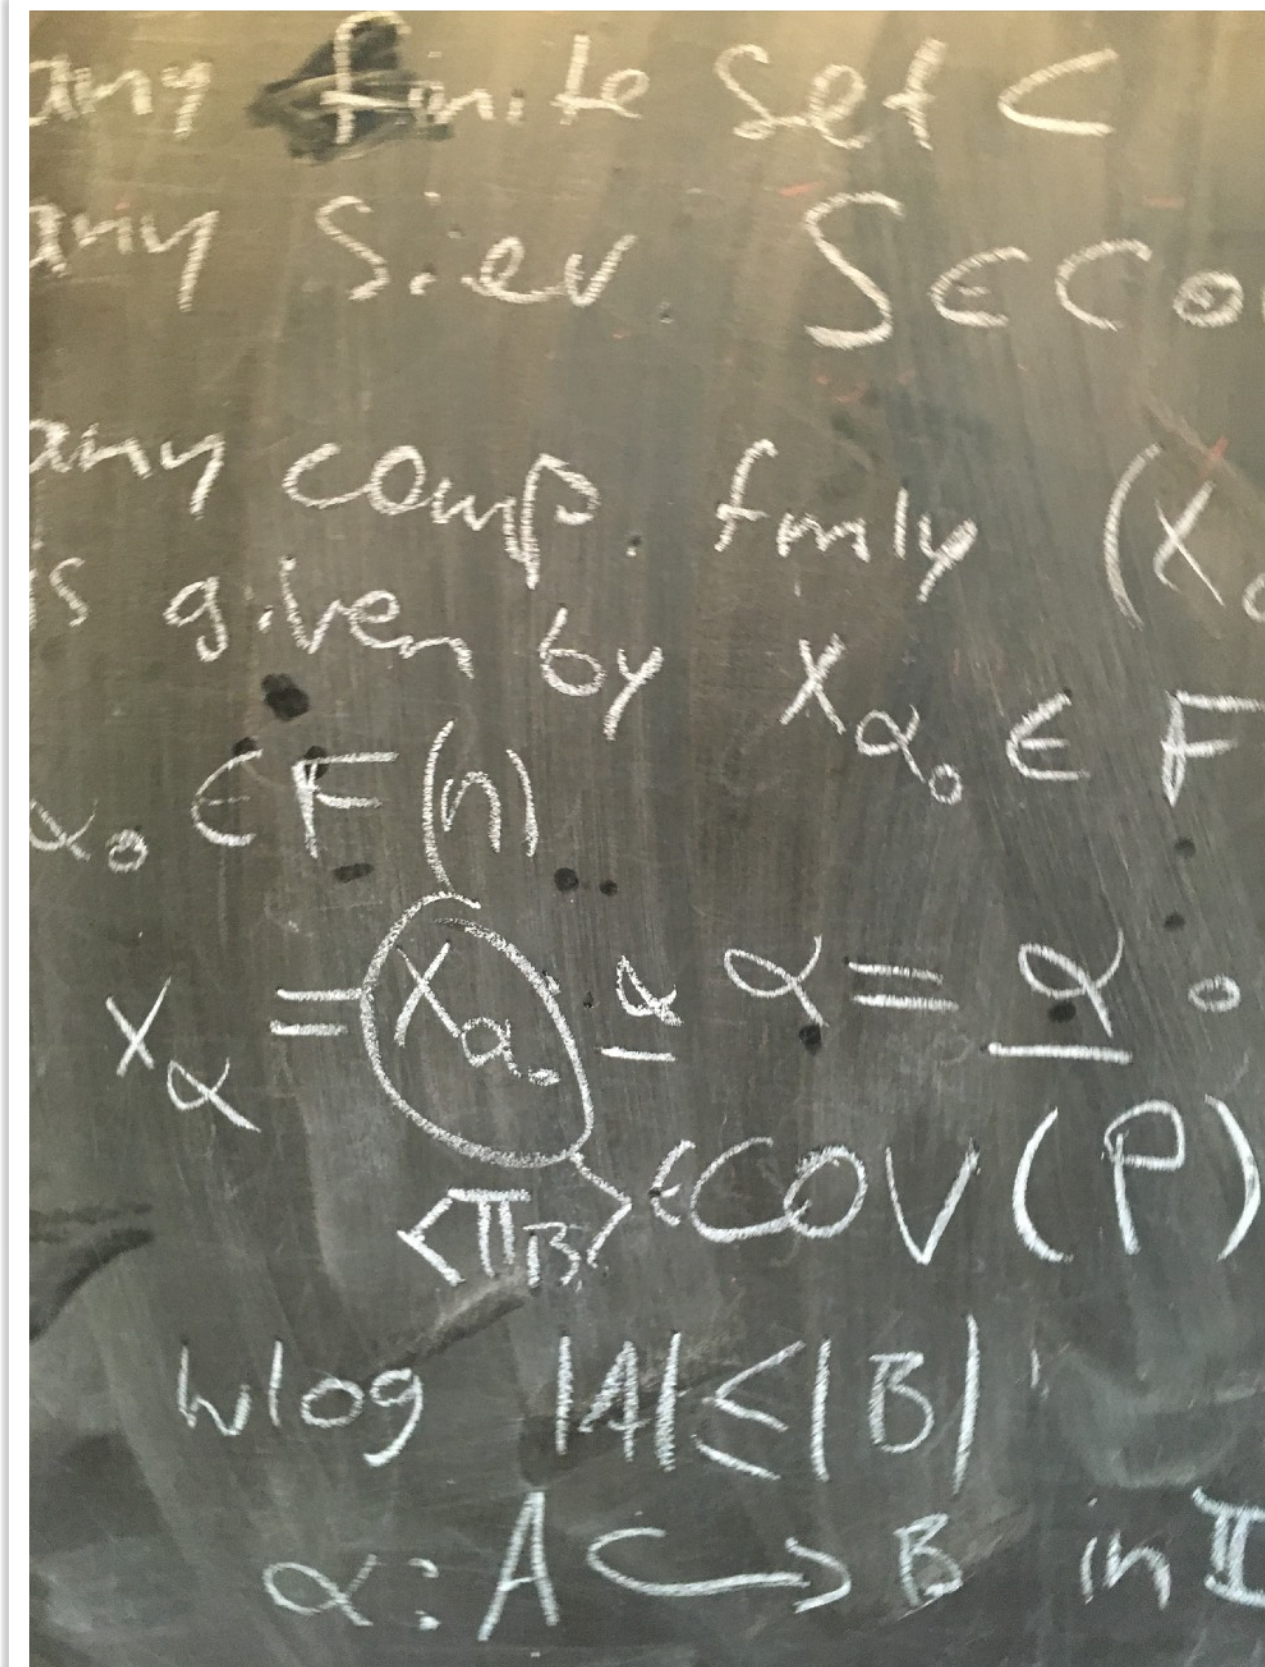 any finite set C
any Siev. S ∈ Co
any comp. fmly (x
is given by x_{α_0} ∈ F
α_0 ∈ F(n)
x_α = x_{α_0} · α α = α_0
<π_B> ∈ COV(P)
wlog |A| ≤ |B|
α : A ↪ B in II